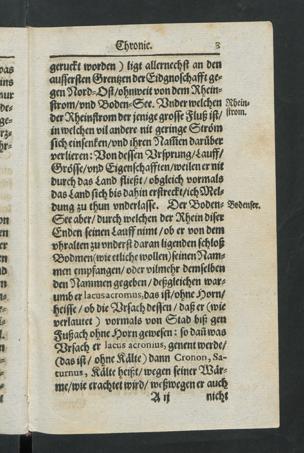 Chronic. 3
geruckt worden) ligt allernechst an den
aussersten Grentzen der Eidgnoschafft ge-
gen Nord-Ost/ohnweit von dem Rhein-
strom/vnd Boden-See. Vnder welchen Rhein-
der Rheinstrom der jenige grosse Fluß ist/ strom.
in welchen vil andere nit geringe Ström
sich einsencken/vnd ihren Nam̃en darüber
verlieren: Von dessen Vrsprung/Lauff/
Grösse/vnd Eigenschafften/weilen er nit
durch das Land fließt/obgleich vormals
das Land sich bis dahin erstreckt/ich Mel-
dung zu thun vnderlasse. Der Boden- Bodensee.
See aber/durch welchen der Rhein diser
Enden seinen Lauff nimt/ob er von dem
vhralten zu vnderst daran ligenden schloß
Bodmen(wie etliche wollen)seinen Nam-
men empfangen/oder vilmehr demselben
den Nammen gegeben/deßgleichen war-
umb er lacus acromus,das ist/ohne Horn/
heisse/ob die Vrsach dessen/daß er (wie
verlautet) vormals von Stad biß gen
Fußach ohne Horn gewesen: so dañ was
Vrsach er lacus acronius, genent werde/
(das ist/ohne Kälte) dann Cronon, Sa-
turnus, Kälte heißt/wegen seiner Wär-
me/wie erachtet wird/weßwegen er auch
A ij nicht